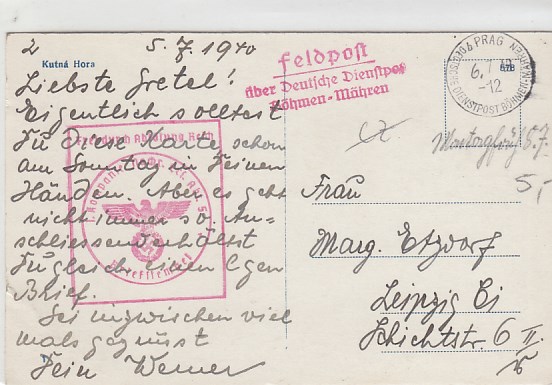 2
Kutná Hora
5. 7. 1940
Liebste Gretel!
Eigentlich solltest
Du diese Karte schon
am Sonntag in Deinen
Händen. Aber es geht
nicht immer so. An-
schliessend erhältst
Du gleich einen
Brief.
Sei inzwischen viel
mals gegrüsst
Dein Werner
Feldpost
über Deutsche Dienstpost
Böhmen-Mähren
Briefstempel
PRAG
6. 7.
-12
DEUTSCHE DIENSTPOST BÖHMEN-MÄHREN
5. 7.
5,-
Frau
Marg. Etzdorf
Leipzig
Schichtstr. 6 II.